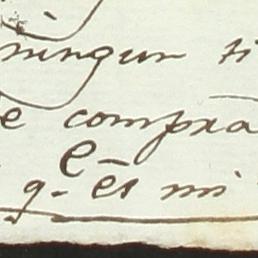 ningun ti
e compra
e
q.~ es mi